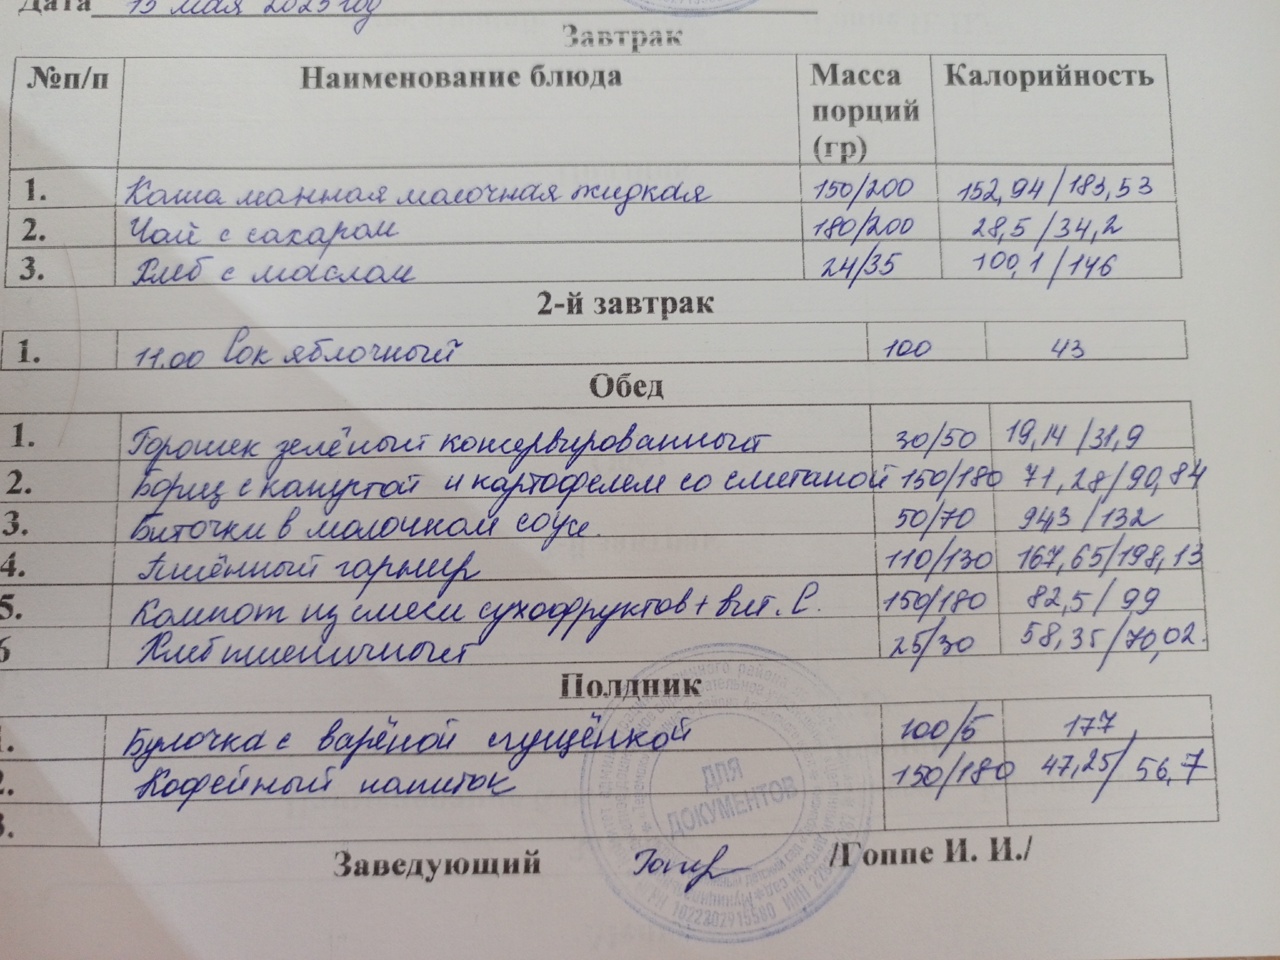 Дата 15 мая 2025 год
Завтрак
№п/п Наименование блюда Масса порций (гр) Калорийность
1. Каша манная молочная жидкая 150/200 152,94/183,53
2. Чай с сахаром 180/200 28,5/34,2
3. Хлеб с маслом 24/35 100,1/146
2-й завтрак
1. 11.00 Сок яблочный 100 43
Обед
1. Горошек зелёный консервированный 30/50 19,14/31,9
2. Борщ с капустой и картофелем со сметаной 150/180 71,28/90,84
3. Биточки в молочном соусе. 50/70 943/132
4. Пшённый гарнир 110/130 167,65/198,13
5. Компот из смеси сухофруктов + вит. С. 150/180 82,5/99
6 Хлеб пшеничный 25/30 58,35/70,02.
Полдник
1. Булочка с варёной сгущёнкой 100/5 177
2. Кофейный напиток 150/180 47,25/56,7
3.
Заведующий /Гоппе И. И./
ДЛЯ
ДОКУМЕНТОВ
1022202915580 ИНН